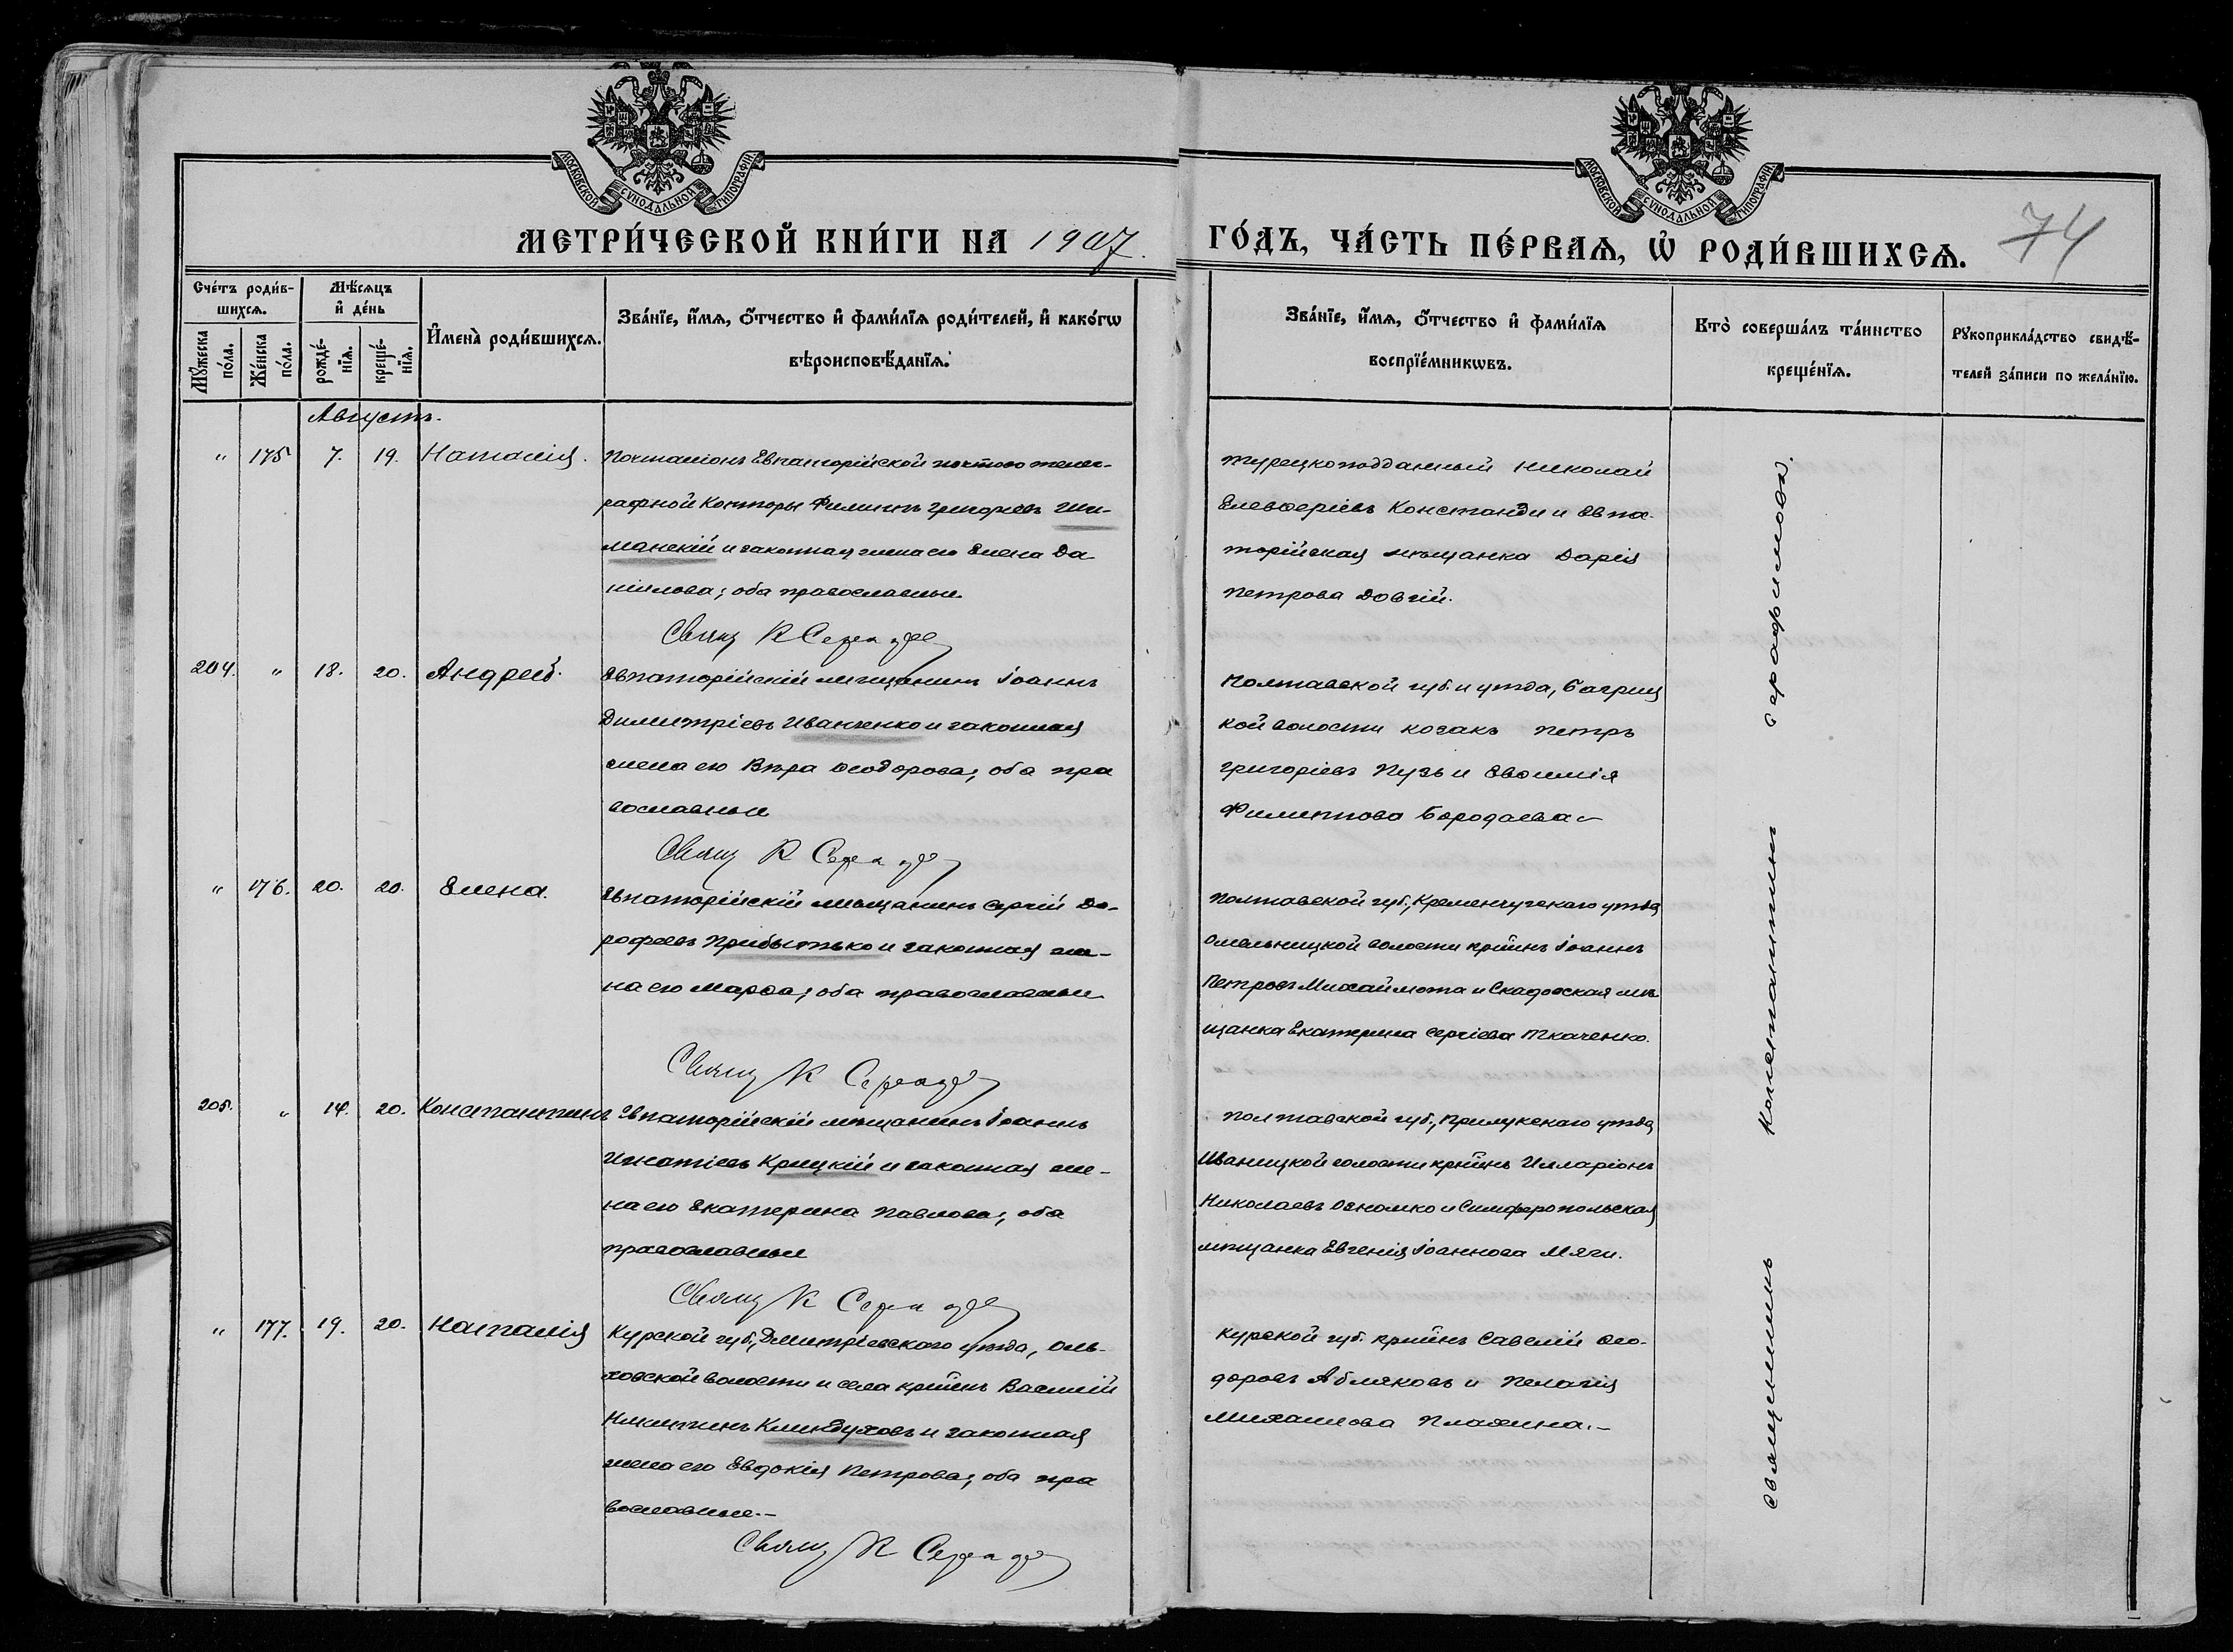 МОСКОВСКОЙ СѴНОДАЛЬНОЙ ТИПОГРАФІИ
МОСКОВСКОЙ СѴНОДАЛЬНОЙ ТИПОГРАФІИ
МЕТРИ́ЧЕСКОЙ КНИ́ГИ НА 1907.
ГО́ДЪ, ЧА́СТЬ ПЕ́РВАѦ, Ѡ҆ РОДИ́ВШИХСѦ.
74
Сче́тъ роди́в-
шихсѧ.
Мꙋ́жеска по́ла.
Же́нска по́ла.
Мѣ́сѧцъ
и҆ де́нь
рожде́-
нїѧ.
креще́-
нїѧ.
И҆мена̀ роди́вшихсѧ.
Зва́нїе, и҆́мѧ, ѻ҆́тчество и҆ фами́лїѧ роди́телей, и҆ како́гѡ
вѣроисповѣ́данїѧ.
Зва́нїе, и҆́мѧ, ѻ҆́тчество и҆ фами́лїѧ
воспрїе́мникѡвъ.
Кто̀ соверша́лъ та́инство
креще́нїѧ.
Рꙋкоприкла́дство свидѣ́-
телей за́писи по жела́нїю.
Августъ.
" 175 7. 19. Наталія.
Почталіонъ Евпаторійской почтово телег-
рафной Конторы Филиппъ Григорьевъ Ши-
манскій и законная жена его Елена Да
ніилова; оба православные.
Свящ К Середа
турецкоподданный Николай
Елевферіевъ Констанди и Евпа-
торійская мѣщанка Дарія
Петрова Довгій.
204. " 18. 20. Андрей.
Евпаторійскій мѣщанинъ Іоаннъ
Димитріевъ Иванченко и законная
жена его Вѣра Ѳеодорова; оба пра
вославные
Свящ К Середа
Полтавской губ. и уѣзда, Багриц
кой волости козакъ Петръ
Григоріевъ Пузь и Евфимія
Филиппова Бородаева
" 176. 20. 20. Елена.
Евпаторійскій мѣщанинъ Сергій До-
рофеевъ Прибытько и законная же-
на его Марфа; оба православные.
Свящ К Середа
Полтавской губ., Кременчугскаго уѣзда
Омельницкой волости крѣйнъ Іоаннъ
Петровъ Михаймота и Скадовская мѣ
щанка Екатерина Сергіева Ткаченко.
205. " 14. 20. Константинъ
Евпаторійскій мѣщанинъ Іоаннъ
Игнатіевъ Крицкій и законная же-
на его Екатерина Павлова; оба
православные
Свящ К Середа
Полтавской губ., Прилукскаго уѣзда
Иваницкой волости крѣйнъ Илларіонъ
Николаевъ и Симферопольская
мѣщанка Евгенія Іоаннова Мяги.
" 177. 19. 20. Наталія
Курской губ., Дмитріевского уѣзда, Оль-
ховской волости и села крѣйнъ Василій
Никитинъ Клиндуховъ и законная
жена его Евдокія Петрова; оба пра
вославные.
Свящ К Середа
Курской губ. крѣйнъ Савелій Ѳео-
доровъ Абляковъ и Пелагія
Михаилова Плахина.
Священникъ Константинъ Серафимовъ.